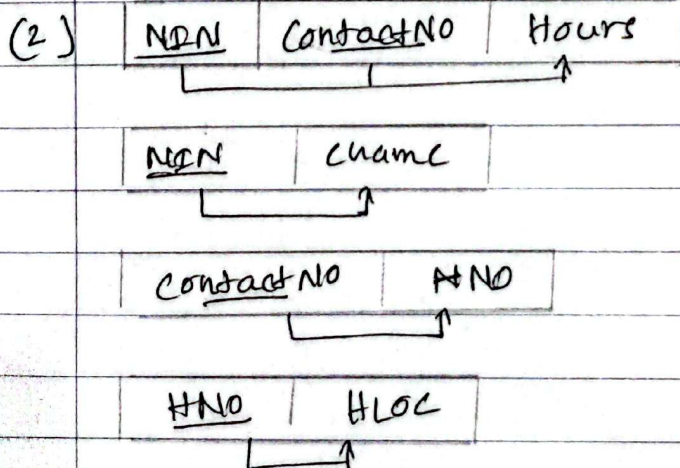 (2) NIN ContactNO Hours
NIN cname
ContactNO HNO
HNO HLOC